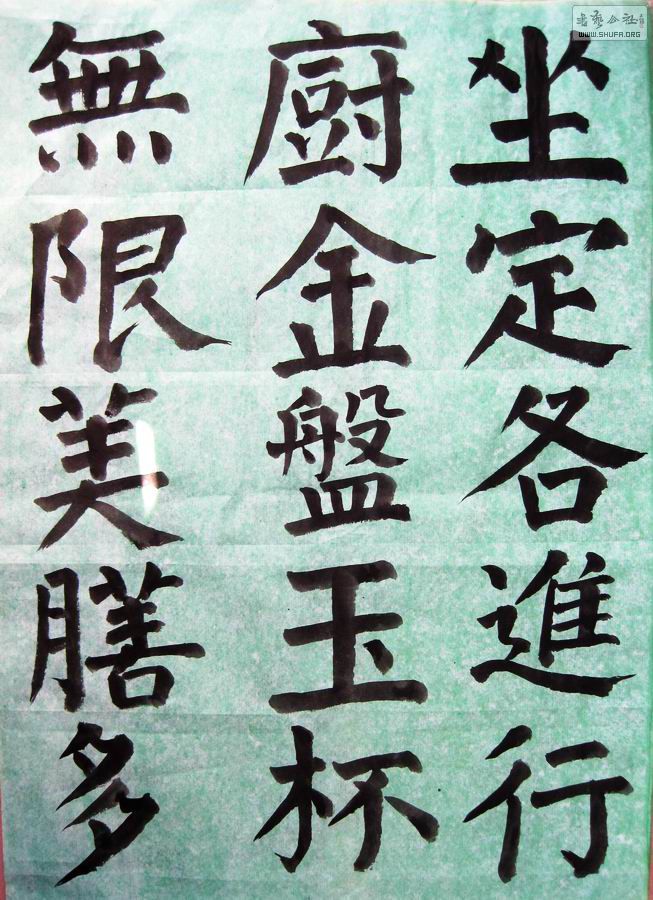 坐定各進行
廚金盤玉杯
無限美膳多
WWW.SHUFA.ORG